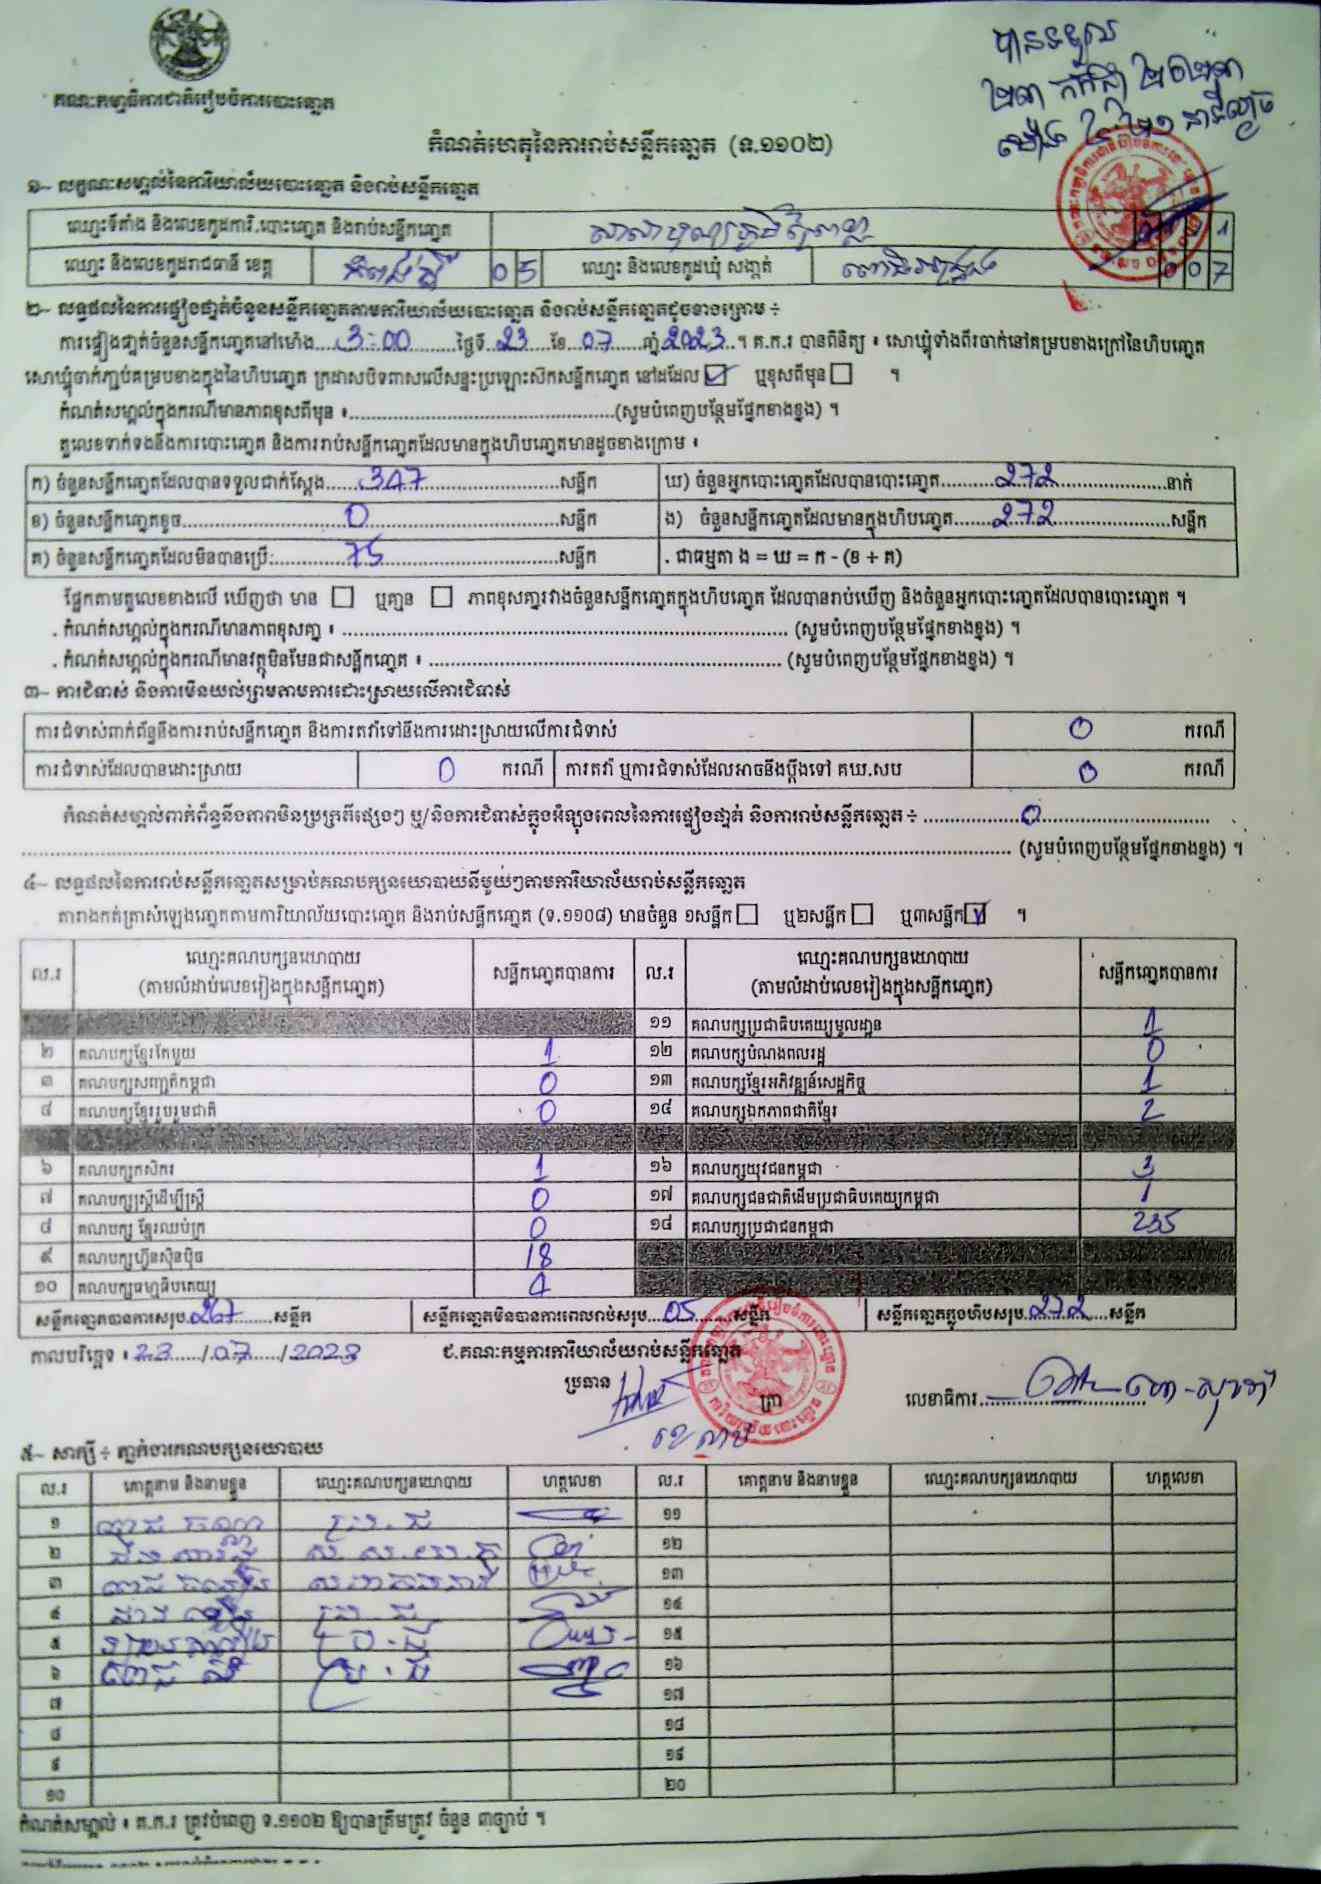 គណៈកម្មាធិការជាតិរៀបចំការបោះឆ្នោត
បានទទួល
២៣ កក្កដា ២០២៣
ម៉ោង
កំណត់ហេតុនៃការរាប់សន្លឹកឆ្នោត (ទ.១១០២)
១- លក្ខណៈសម្គាល់នៃការិយាល័យបោះឆ្នោត និងរាប់សន្លឹកឆ្នោត
ឈ្មោះទីតាំង និងលេខកូដការិ.បោះឆ្នោត និងរាប់សន្លឹកឆ្នោត 1
ឈ្មោះ និងលេខកូដរាជធានី ខេត្ត កំពង់ស្ពឺ 05 ឈ្មោះ និងលេខកូដឃុំ សង្កាត់ 007
២- លទ្ធផលនៃការផ្ទៀងផ្ទាត់ចំនួនសន្លឹកឆ្នោតតាមការិយាល័យបោះឆ្នោត និងរាប់សន្លឹកឆ្នោតដូចខាងក្រោម ÷
ការផ្ទៀងផ្ទាត់ចំនួនសន្លឹកឆ្នោតនៅម៉ោង 3:00 ថ្ងៃទី 23 ខែ 07 ឆ្នាំ 2023 ។ គ.ក.រ បានពិនិត្យ ៖ សោឃ្លុំទាំងពីរចាក់នៅគម្របខាងក្រៅនៃហិបឆ្នោត
សោឃ្លុំចាក់ភ្ជាប់គម្របខាងក្នុងនៃហិបឆ្នោត ក្រដាសបិទពាសលើសន្ទះប្រឡោះសៀតសន្លឹកឆ្នោត នៅដដែល ☑ ឬខុសពីមុន ☐ ។
កំណត់សម្គាល់ក្នុងករណីមានភាពខុសពីមុន ៖ (សូមបំពេញបន្ថែមផ្នែកខាងខ្នង) ។
តួលេខទាក់ទងនឹងការបោះឆ្នោត និងការរាប់សន្លឹកឆ្នោតដែលមានក្នុងហិបឆ្នោតមានដូចខាងក្រោម ៖
ក) ចំនួនសន្លឹកឆ្នោតដែលបានទទួលជាក់ស្តែង 347 សន្លឹក ឃ) ចំនួនអ្នកបោះឆ្នោតដែលបានបោះឆ្នោត 272 នាក់
ខ) ចំនួនសន្លឹកឆ្នោតខូច 0 សន្លឹក ង) ចំនួនសន្លឹកឆ្នោតដែលមានក្នុងហិបឆ្នោត 272 សន្លឹក
គ) ចំនួនសន្លឹកឆ្នោតដែលមិនបានប្រើ 75 សន្លឹក . ជាធម្មតា ង = ឃ = ក - (ខ + គ)
ផ្អែកតាមតួលេខខាងលើ ឃើញថា មាន ☐ ឬគ្មាន ☐ ភាពខុសគ្នារវាងចំនួនសន្លឹកឆ្នោតក្នុងហិបឆ្នោត ដែលបានរាប់ឃើញ និងចំនួនអ្នកបោះឆ្នោតដែលបានបោះឆ្នោត ។
. កំណត់សម្គាល់ក្នុងករណីមានភាពខុសគ្នា ៖ (សូមបំពេញបន្ថែមផ្នែកខាងខ្នង) ។
. កំណត់សម្គាល់ក្នុងករណីមានវត្ថុមិនមែនជាសន្លឹកឆ្នោត ៖ (សូមបំពេញបន្ថែមផ្នែកខាងខ្នង) ។
៣- ការជំទាស់ និងការមិនយល់ព្រមតាមការដោះស្រាយលើការជំទាស់
ការជំទាស់ពាក់ព័ន្ធនឹងការរាប់សន្លឹកឆ្នោត និងការតវ៉ាទៅនឹងការដោះស្រាយលើការជំទាស់ 0 ករណី
ការជំទាស់ដែលបានដោះស្រាយ 0 ករណី ការតវ៉ា ឬការជំទាស់ដែលអាចនឹងប្តឹងទៅ គឃ.សប 0 ករណី
កំណត់សម្គាល់ពាក់ព័ន្ធនឹងភាពមិនប្រក្រតីផ្សេងៗ ឬ/និងការជំទាស់ក្នុងអំឡុងពេលនៃការផ្ទៀងផ្ទាត់ និងការរាប់សន្លឹកឆ្នោត ÷ 0
(សូមបំពេញបន្ថែមផ្នែកខាងខ្នង) ។
៤- លទ្ធផលនៃការរាប់សន្លឹកឆ្នោតសម្រាប់គណបក្សនយោបាយនីមួយៗតាមការិយាល័យរាប់សន្លឹកឆ្នោត
តារាងកត់ត្រាសំឡេងឆ្នោតតាមការិយាល័យបោះឆ្នោត និងរាប់សន្លឹកឆ្នោត (ទ.១១០៨) មានចំនួន ១សន្លឹក ☐ ឬ២សន្លឹក ☐ ឬ៣សន្លឹក ☑ ។
ល.រ ឈ្មោះគណបក្សនយោបាយ (តាមលំដាប់លេខរៀងក្នុងសន្លឹកឆ្នោត) សន្លឹកឆ្នោតបានការ ល.រ ឈ្មោះគណបក្សនយោបាយ (តាមលំដាប់លេខរៀងក្នុងសន្លឹកឆ្នោត) សន្លឹកឆ្នោតបានការ
១១ គណបក្សប្រជាធិបតេយ្យមូលដ្ឋាន 1
២ គណបក្សខ្មែរតែមួយ 1 ១២ គណបក្សបំណងពលរដ្ឋ 0
៣ គណបក្សសញ្ជាតិកម្ពុជា 0 ១៣ គណបក្សខ្មែរអភិវឌ្ឍន៍សេដ្ឋកិច្ច 1
៤ គណបក្សខ្មែររួបរួមជាតិ 0 ១៤ គណបក្សឯកភាពជាតិខ្មែរ 2
៦ គណបក្សកសិករ 1 ១៦ គណបក្សយុវជនកម្ពុជា 3
៧ គណបក្សស្រ្តីដើម្បីស្រ្តី 0 ១៧ គណបក្សជនជាតិដើមប្រជាធិបតេយ្យកម្ពុជា 1
៨ គណបក្ស ខ្មែរឈប់ក្រ 0 ១៨ គណបក្សប្រជាជនកម្ពុជា 235
៩ គណបក្សហ៊្វុនស៊ិនប៉ិច 18
១០ គណបក្សធម្មាធិបតេយ្យ 4
សន្លឹកឆ្នោតបានការសរុប 267 សន្លឹក សន្លឹកឆ្នោតមិនបានការពេលរាប់សរុប 05 សន្លឹក សន្លឹកឆ្នោតក្នុងហិបសរុប 272 សន្លឹក
កាលបរិច្ឆេទ ៖ 23/07/2023 ជ.គណៈកម្មការការិយាល័យរាប់សន្លឹកឆ្នោត
ប្រធាន ត្រា លេខាធិការ
៥- សាក្សី ÷ ភ្នាក់ងារគណបក្សនយោបាយ
ល.រ គោត្តនាម និងនាមខ្លួន ឈ្មោះគណបក្សនយោបាយ ហត្ថលេខា ល.រ គោត្តនាម និងនាមខ្លួន ឈ្មោះគណបក្សនយោបាយ ហត្ថលេខា
១ ១១
២ ១២
៣ ១៣
៤ ១៤
៥ ១៥
៦ ១៦
៧ ១៧
៨ ១៨
៩ ១៩
១០ ២០
កំណត់សម្គាល់ ៖ គ.ក.រ ត្រូវបំពេញ ទ.១១០២ ឱ្យបានត្រឹមត្រូវ ចំនួន ៣ច្បាប់ ។